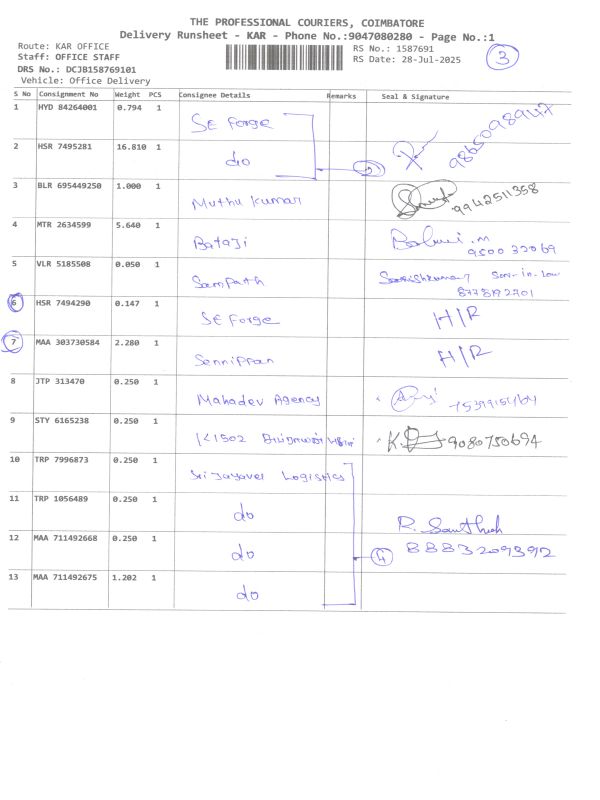 THE PROFESSIONAL COURIERS, COIMBATORE
Delivery Runsheet - KAR - Phone No.:9047080280 - Page No.:1
Route: KAR OFFICE
RS No.: 1587691
3
Staff: OFFICE STAFF
RS Date: 28-Jul-2025
DRS No.: DCJB158769101
Vehicle: Office Delivery
S No Consignment No Weight PCS Consignee Details Remarks Seal & Signature
1 HYD 84264001 0.794 1 SE Forge
2 HSR 7495281 16.810 1 do
3 BLR 695449250 1.000 1 Muthu kumar 9942511358
4 MTR 2634599 5.640 1 Bataji
9500 32069
5 VLR 5185508 0.050 1 Sampath Son-in-Law
8778192701
6 HSR 7494290 0.147 1 SE Forge H/R
7 MAA 303730584 2.280 1 Sennippan H/R
8 JTP 313470 0.250 1 Mahadev Agency
9 STY 6165238 0.250 1 K1502 9080750694
10 TRP 7996873 0.250 1 Sri Jayavel Logistics
11 TRP 1056489 0.250 1 do R. Santhosh
12 MAA 711492668 0.250 1 do 4 8883209392
13 MAA 711492675 1.202 1 do